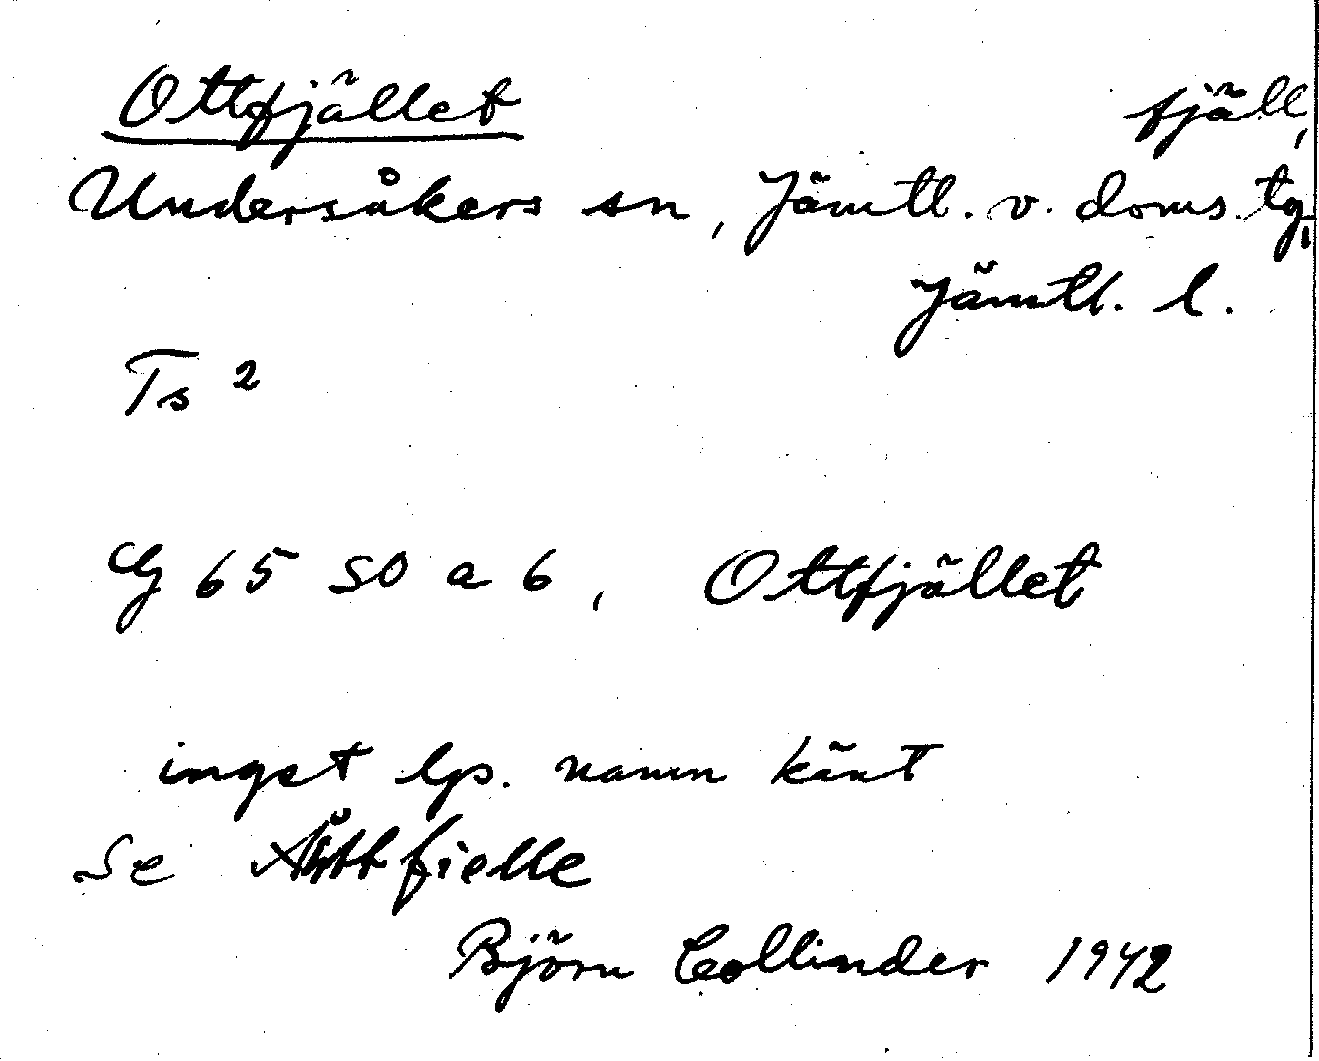 Ottfjället fjäll,
Undersåkers sn, Jämtl. v. doms.tg,
Jämtl. l.
Ts 2
G 65 SO a 6, Ottfjället
inget lp. namn känt
Se Åttfjelle
Björn Collinder 1942